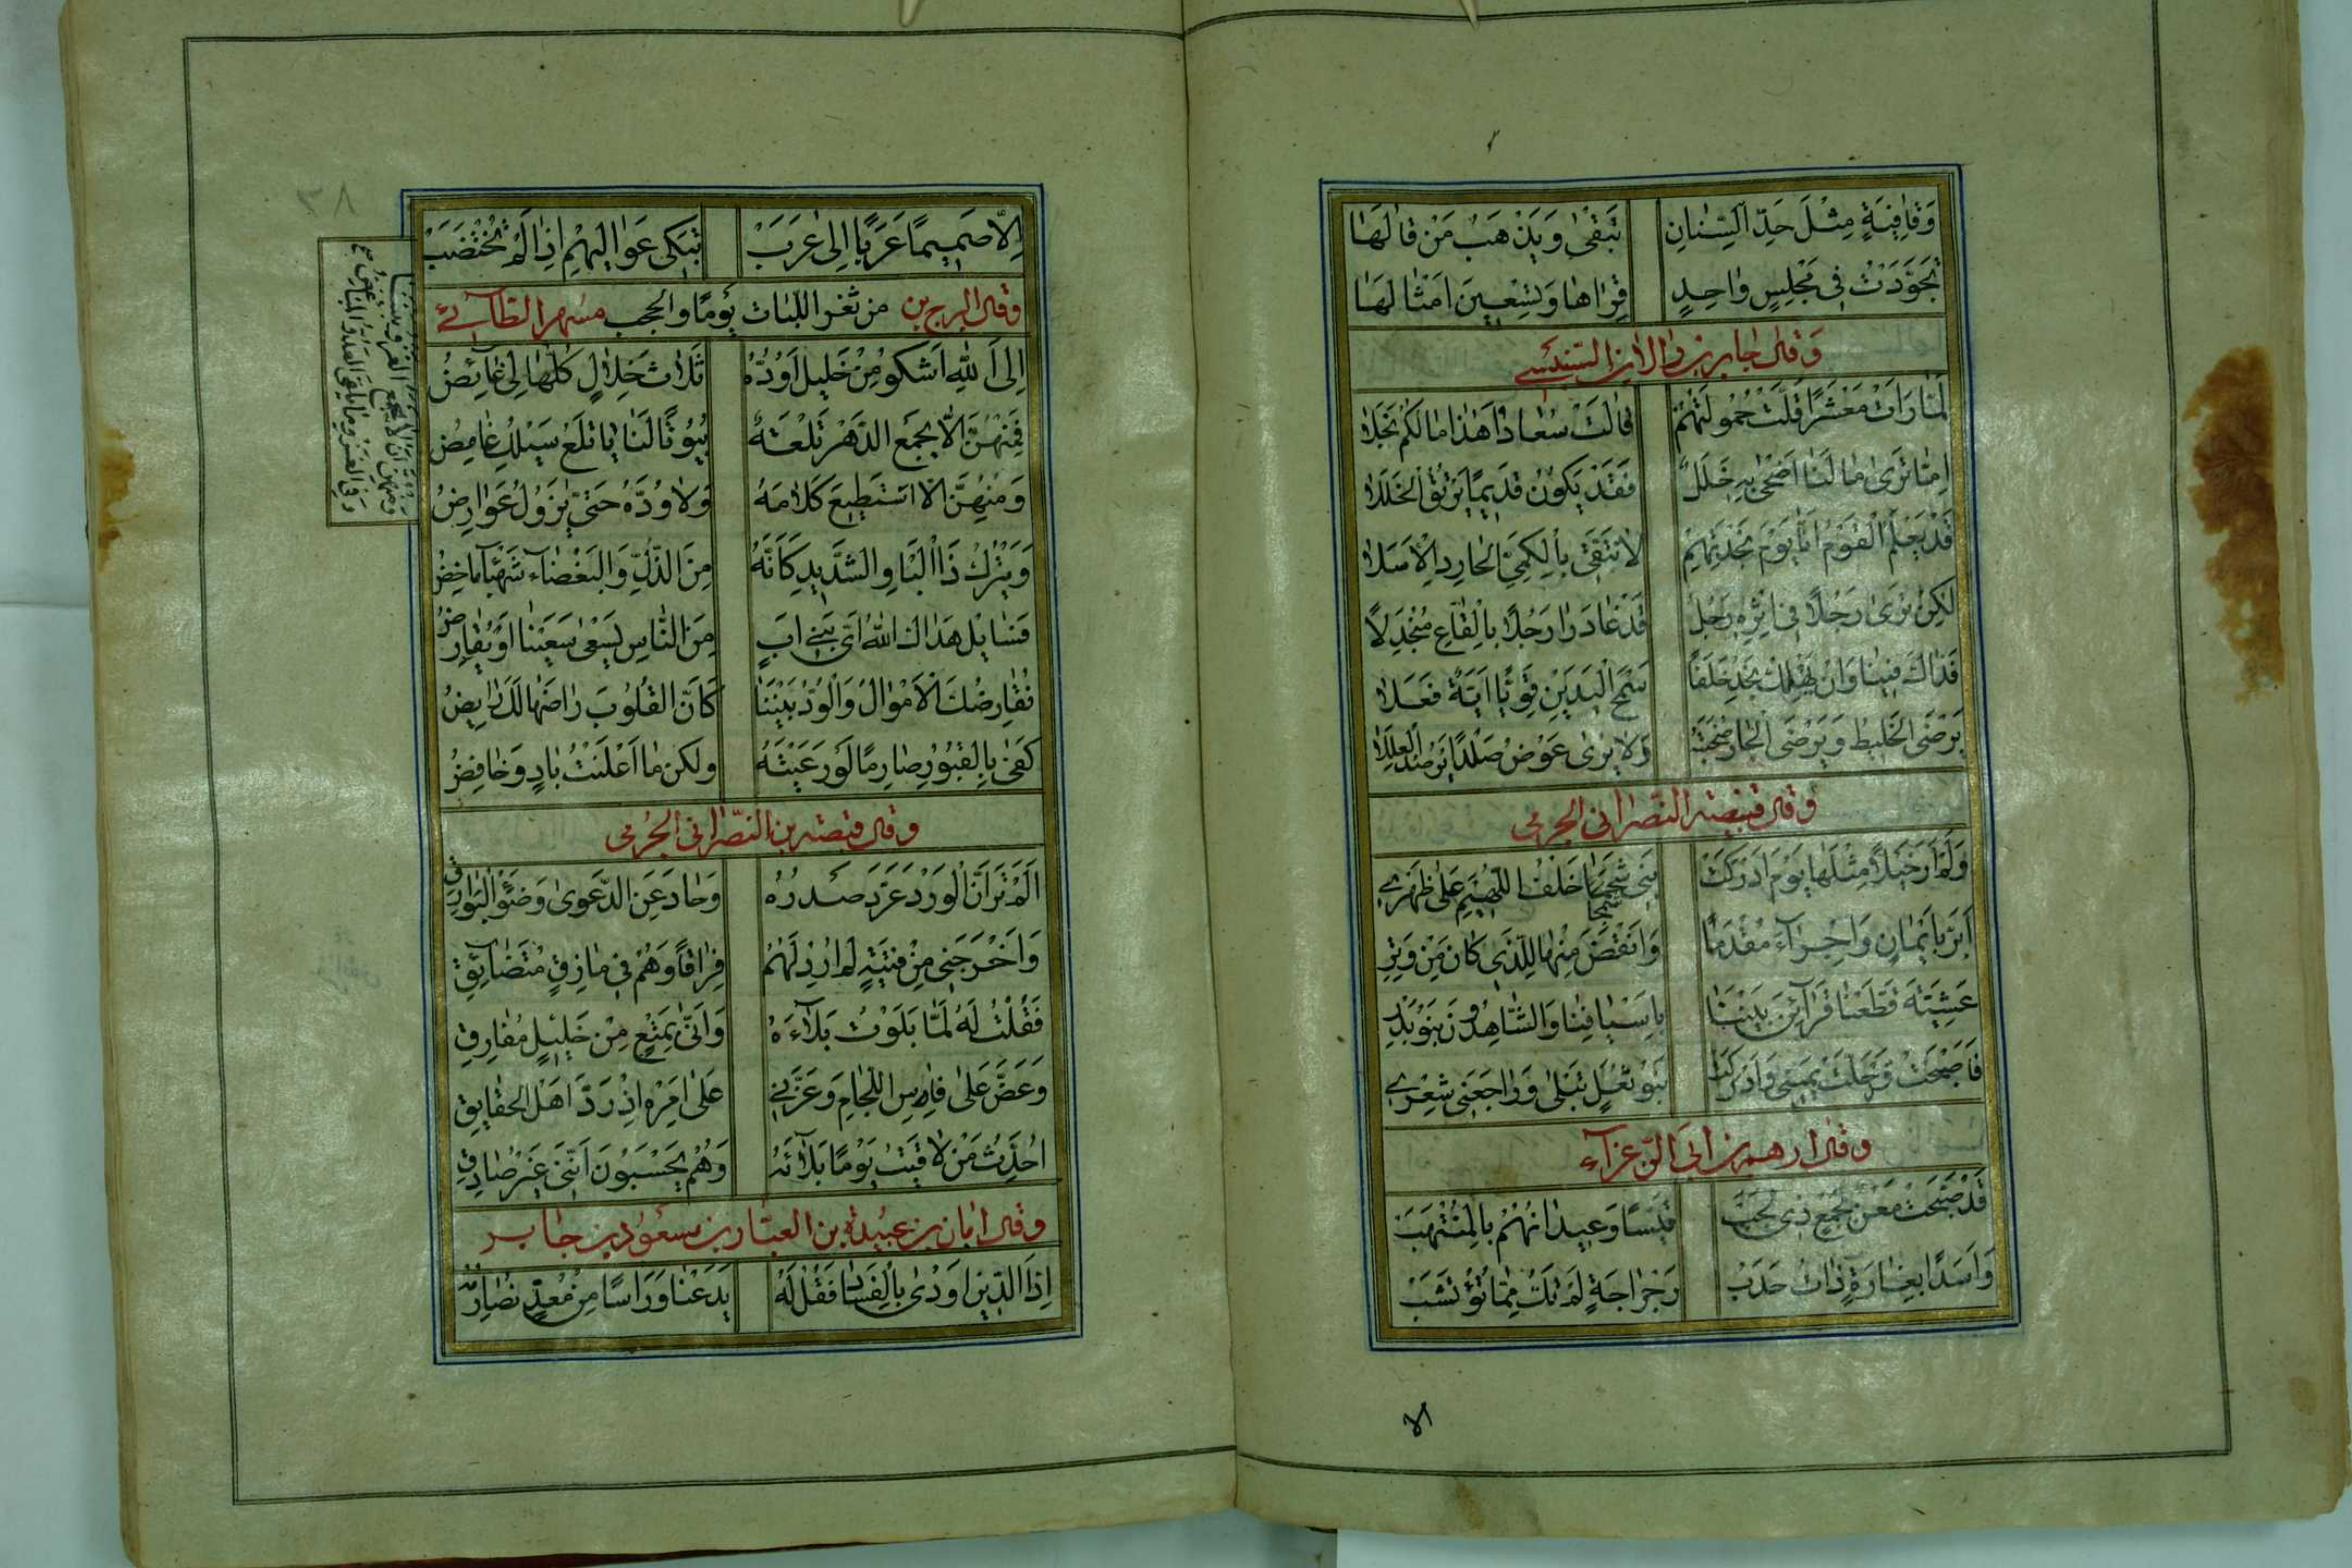 وَقَافِيَةٍ مِثْلَ حَدِّ السِّنَانِ تَبْقَى وَيَذْهَبُ مَنْ قَالَهَا
تَجَوَّدَتْ فِى مَجْلِسٍ وَاحِدٍ قِرَاهَا وَتِسْعِينَ اَمْثَالَهَا
وَقَالَ جابر بن دالان السنبسى
لَمَّا رَاَتْ مَعْشَرًا قَلَّتْ حُمُولَتُهُمْ قَالَتْ سُعَادُ اَهٰذَا مَا لَكُمْ بَجَلَا
اِمَّا تَرَى مَا لَنَا اَضْحَى بِهِ خَلَلٌ فَقَدْ يَكُونُ قَدِيمًا يَرْتُقُ الْخَلَلَا
قَدْ يَعْلَمُ الْقَوْمُ اَنَّا يَوْمَ نَجْدَتِهِمْ لَا نَتَّقِى بِالْكَمِىِّ الْحَارِدِ الْاَسَلَا
لٰكِنْ تَرَى رَجُلًا فِى اِثْرِهِ رَجُلٌ قَدْ غَادَرَا رَجُلًا بِالْقَاعِ مُنْجَدِلًا
فَذَاكَ فِينَا وَاِنْ يَهْلِكْ نَجِدْ خَلَفًا سَمْحَ الْيَدَيْنِ قَوِيًّا اَيَّةً فَعَلَا
يَرْضَى الْخَلِيطُ وَيَرْضَى الْجَارُ صُحْبَتَهُ وَلَا يُرَى عَوْضُ صَلْدًا يَرْصُدُ الْعِلَلَا
وقال قبيصة النصرانى الجرمى
وَلَمْ اَرَ خَيْلًا مِثْلَهَا يَوْمَ اَدْرَكَتْ بَنِى شَمَجَى خَلْفَ اللُّهَيْمِ عَلَى ظَهْرِى
اَبَرَّ بِاَيْمَانٍ وَاَجْرَاءَ مُقْدَمًا وَانْقَضَ مِنْهَا لِلَّذِى كَانَ مِنْ وِتْرِ
عَشِيَّةَ قَطَعْنَا قَرَائِنَ بَيْنَنَا بِاَسْيَافِنَا وَالشَّاهِدُونَ بَنُو بَدْرِ
فَاَصْبَحَتْ قَدْ حَلَّتْ يَمِينِى وَاَدْرَكَتْ بَنُو ثُعَلٍ تَبْلَى وَرَاجَعَنِى شِعْرِى
وقال ادهم بن ابى الزعراء
قَدْ صَبَحَتْ مَعْنٌ بِجَمْعٍ ذِى لَجَبْ قَيْسًا وَعِبْدَانَهُمْ بِالْمُنْتَهَبْ
وَاَسَدًا بِغَارَةٍ ذَاتِ حَدَبْ رَجْرَاجَةٍ لَمْ تَكُ مِمَّا تُؤْتَشَبْ
الا
٣٨
اِلَّا صَمِيمًا عَرَبًا اِلَى عَرَبْ تَبْكِى عَوَالِيهِمْ اِذَا لَمْ تَخْتَضِبْ
وقال البرج بن من ثغر اللبات يومًا والحجب مسهر الطائى
اِلَى اللّٰهِ اَشْكُو مِنْ خَلِيلٍ اَوُدُّهُ ثَلَاثَ خِلَالٍ كُلُّهَا لِى غَائِضُ
فَمِنْهُنَّ اَلَّا يَجْمَعَ الدَّهْرُ تَلْعَةً بُيُوتًا لَنَا يَا تَلْعَ سَيْلُكِ غَامِضُ
وَمِنْهُنَّ اَلَّا اَسْتَطِيعَ كَلَامَهُ وَلَا وُدَّهُ حَتَّى يَزُولَ عُوَارِضُ
وَيَتْرُكُ ذَا الْبَاوِ الشَّدِيدِ كَاَنَّهُ مِنَ الذُّلِّ وَالْبَغْضَاءِ شَهْبَاءُ مَاخِضُ
فَسَايِلْ هَدَاكَ اللّٰهُ اَىُّ بَنِى اَبٍ مِنَ النَّاسِ يَسْعَى سَعْيَنَا اَوْ يُقَارِضُ
نُقَارِضُكَ الْاَمْوَالَ وَالْوُدَّ بَيْنَنَا كَاَنَّ الْقُلُوبَ رَاضَهَا لَكَ رَايِضُ
كَفَى بِالْقُبُورِ صَارِمًا لَوْ رَعَيْتَهُ وَلٰكِنْ مَا اَعْلَنْتَ بَادٍ وَخَافِضُ
وقال قبيصة بن النصرانى الجرمى
اَلَمْ تَرَ اَنَّ الْوَرْدَ عَرَّدَ صَدْرُهُ وَحَادَ عَنِ الدَّعْوَى وَضَوْءِ الْبَوَارِقِ
وَاَخْرَجَنِى مِنْ فِتْيَةٍ لَمْ اُرِدْ لَهُمْ فِرَاقًا وَهُمْ فِى مَازِقٍ مُتَضَايِقِ
فَقُلْتُ لَهُ لَمَّا بَلَوْتُ بَلَاءَهُ وَاَنَّى بِمَتْعٍ مِنْ خَلِيلٍ مُفَارِقِ
وَعَضَّ عَلَى فَاسِ اللِّجَامِ وَعَزَّنِى عَلَى اَمْرِهِ اِذْ رَدَّ اَهْلُ الْحَقَايِقِ
اُحَدِّثُ مَنْ لَاقَيْتُ يَوْمًا بَلَائَهُ وَهُمْ يَحْسَبُونَ اَنَّنِى غَيْرُ صَادِقِ
وقال ابان بن عبيدة بن العيار بن مسعود بن جابر
اِذَا الدِّينُ اَوْدَى بِالْفَسَادِ فَقُلْ لَهُ يَدَعْنَا وَرَاسًا مِنْ مَعَدٍّ نُصَادِمُهْ